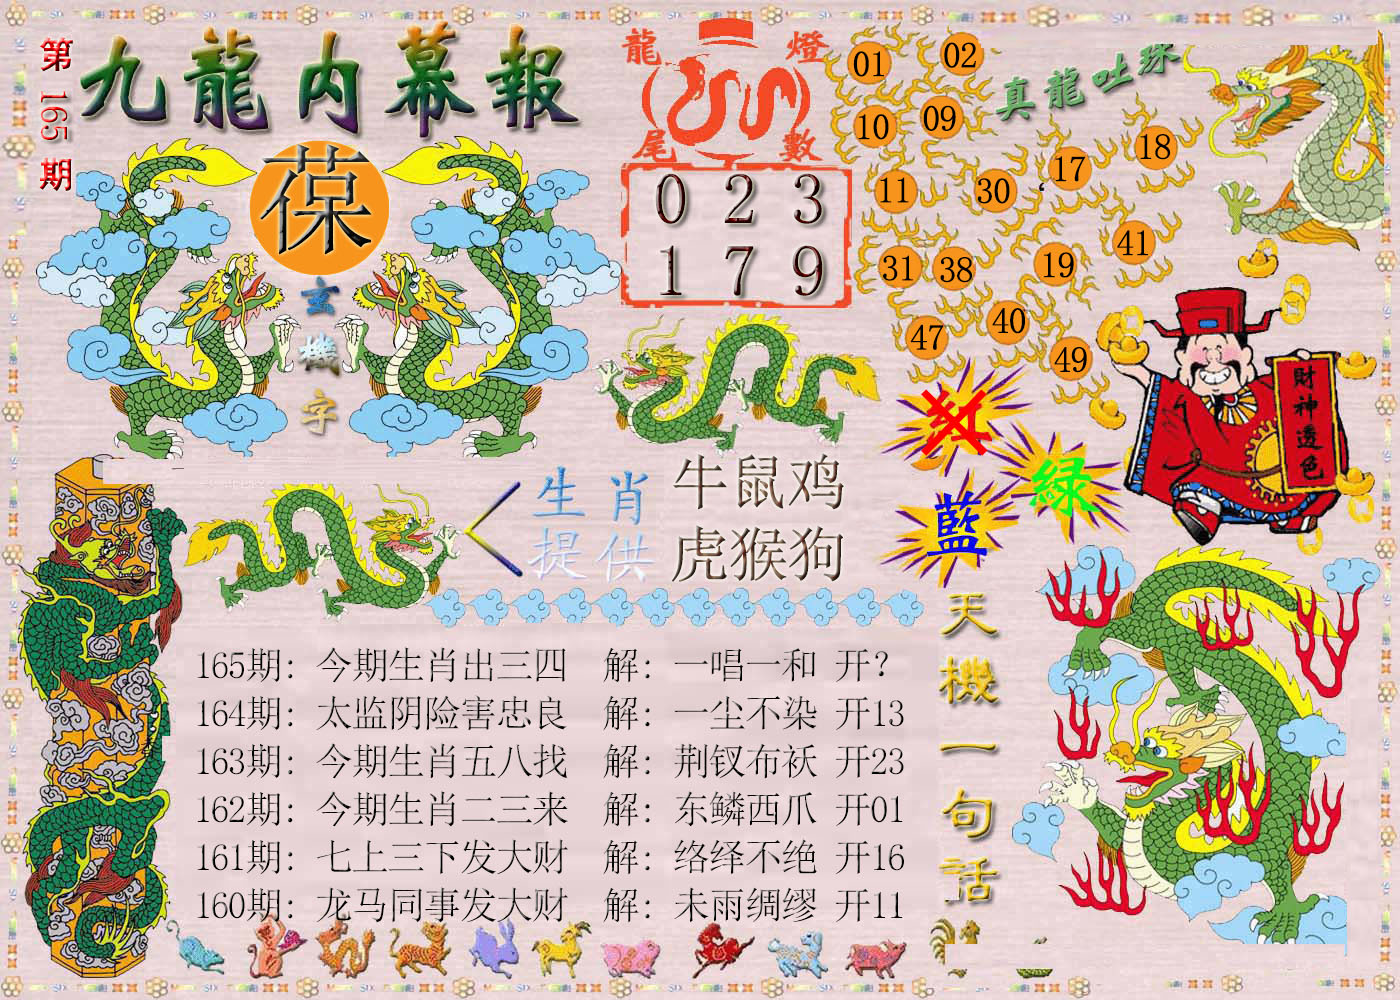 第165期
九龍内幕報
葆
玄機字
龍燈
尾數
0 2 3
1 7 9
01 02
10 09
11 30 17 18
31 38 19 41
47 40 49
真龍吐珠
財神透色
紅
綠
藍
生肖
提供
牛鼠鸡
虎猴狗
天機一句話
165期: 今期生肖出三四 解: 一唱一和 开?
164期: 太监阴险害忠良 解: 一尘不染 开13
163期: 今期生肖五八找 解: 荆钗布袄 开23
162期: 今期生肖二三来 解: 东鳞西爪 开01
161期: 七上三下发大财 解: 络绎不绝 开16
160期: 龙马同事发大财 解: 未雨绸缪 开11